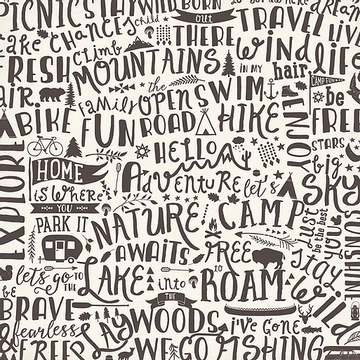 PICNICS STAY WILD BORN out THERE
take CHANCES child TRAVEL LIVE
FRESH climb MOUNTAINS wind LIFE
air IN MY hair
family the OPEN SWIM be
BIKE FUN ROAD HIKE FREE
EXPLORE HELLO YOU STARS
HOME is WHERE YOU PARK IT
Adventure let's big SKY
NATURE CAMP just
AWAITS FREE to ROAM stay
let's GO TO THE LAKE into THE WOODS
be BRAVE fearless
& FREE i've GONE
WE GO FISHING